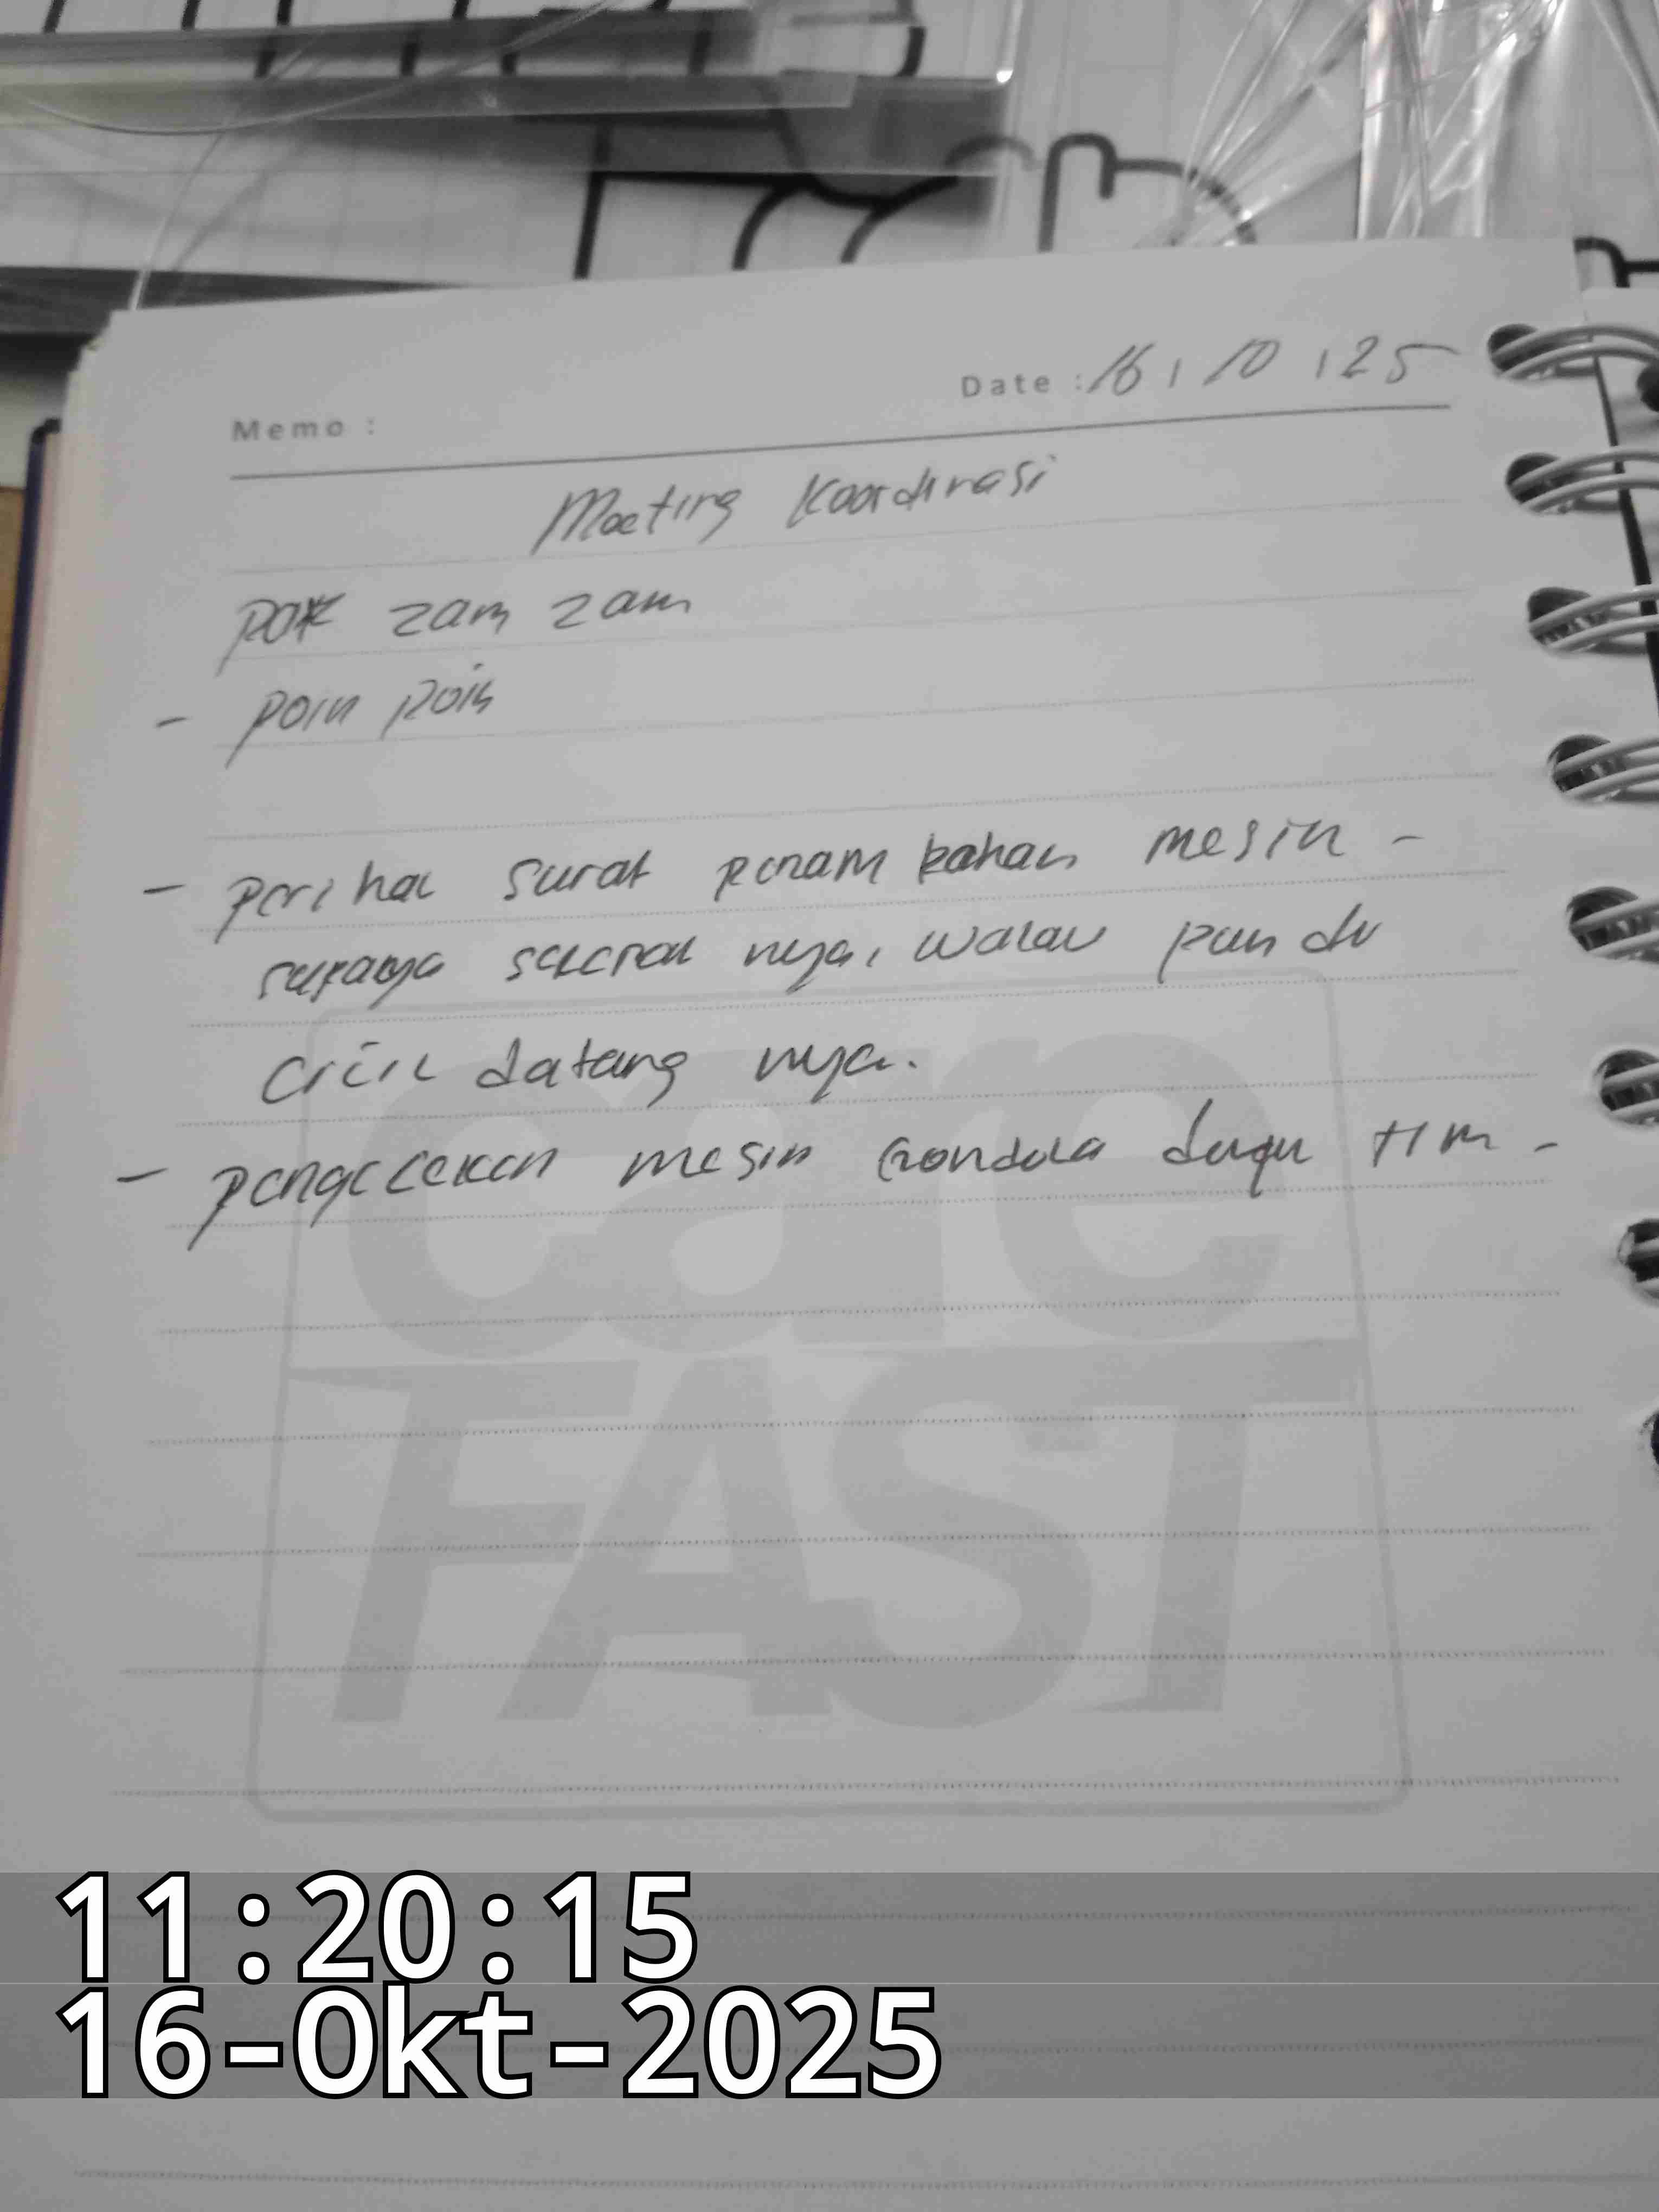 Memo : Date : 16 / 10 / 25
Meeting Koordinasi
pak zam zam
- poin poin
- perihal surat penambahan mesin -
supaya secepat nya, walau pun di
cicil datang nya.
- pengecekan mesin Gondola dengan tim -
care
FAST
11:20:15
16-Okt-2025